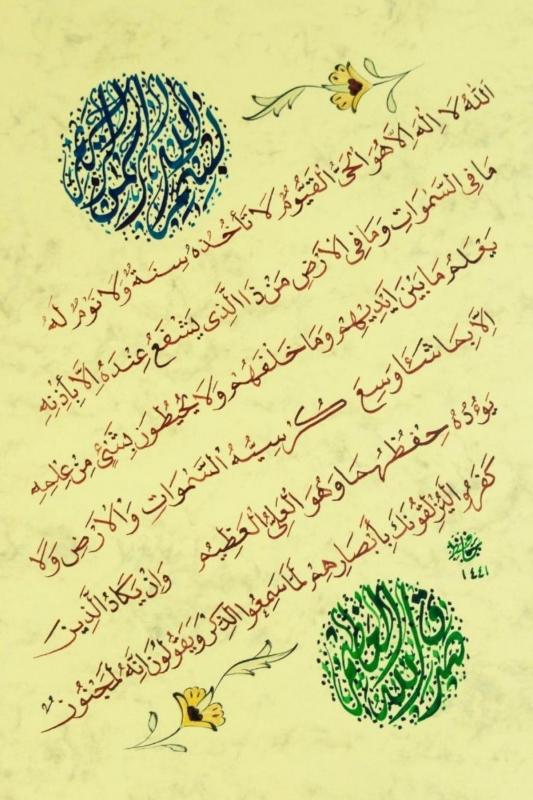 بسم الله الرحمن الرحيم
اَللّٰهُ لَا اِلٰهَ اِلَّا هُوَ الْحَىُّ الْقَيُّومُ لَا تَأْخُذُهُ سِنَةٌ وَلَا نَوْمٌ لَهُ
مَا فِى السَّمٰوَاتِ وَمَا فِى الْاَرْضِ مَنْ ذَا الَّذِى يَشْفَعُ عِنْدَهُ اِلَّا بِاِذْنِهِ
يَعْلَمُ مَا بَيْنَ اَيْدِيهِمْ وَمَا خَلْفَهُمْ وَلَا يُحِيطُونَ بِشَىْءٍ مِنْ عِلْمِهِ
اِلَّا بِمَا شَاءَ وَسِعَ كُرْسِيُّهُ السَّمٰوَاتِ وَالْاَرْضَ وَلَا
يَؤُدُهُ حِفْظُهُمَا وَهُوَ الْعَلِىُّ الْعَظِيمُ وَاِنْ يَكَادُ الَّذِينَ
كَفَرُوا لَيُزْلِقُونَكَ بِأَبْصَارِهِمْ لَمَّا سَمِعُوا الذِّكْرَ وَيَقُولُونَ اِنَّهُ لَمَجْنُونٌ
١٤٤١
صدق الله العظيم